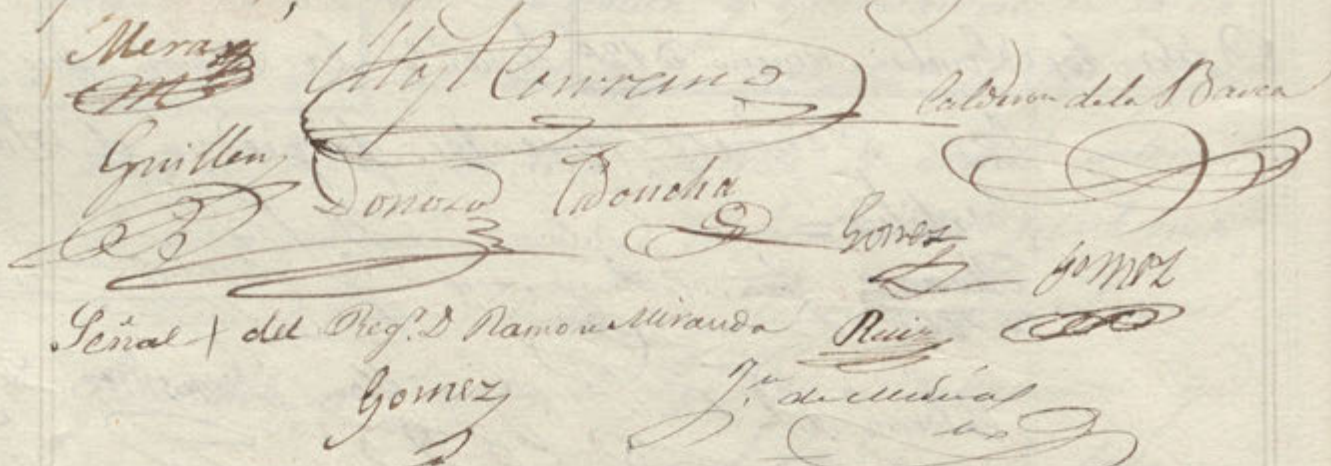 Meras Corrano Calderon de la Barca
Guillen Donoso Gomez Gomez
Señal + del Regr. D Ramon Miranda Ruiz
Gomez Jn. de